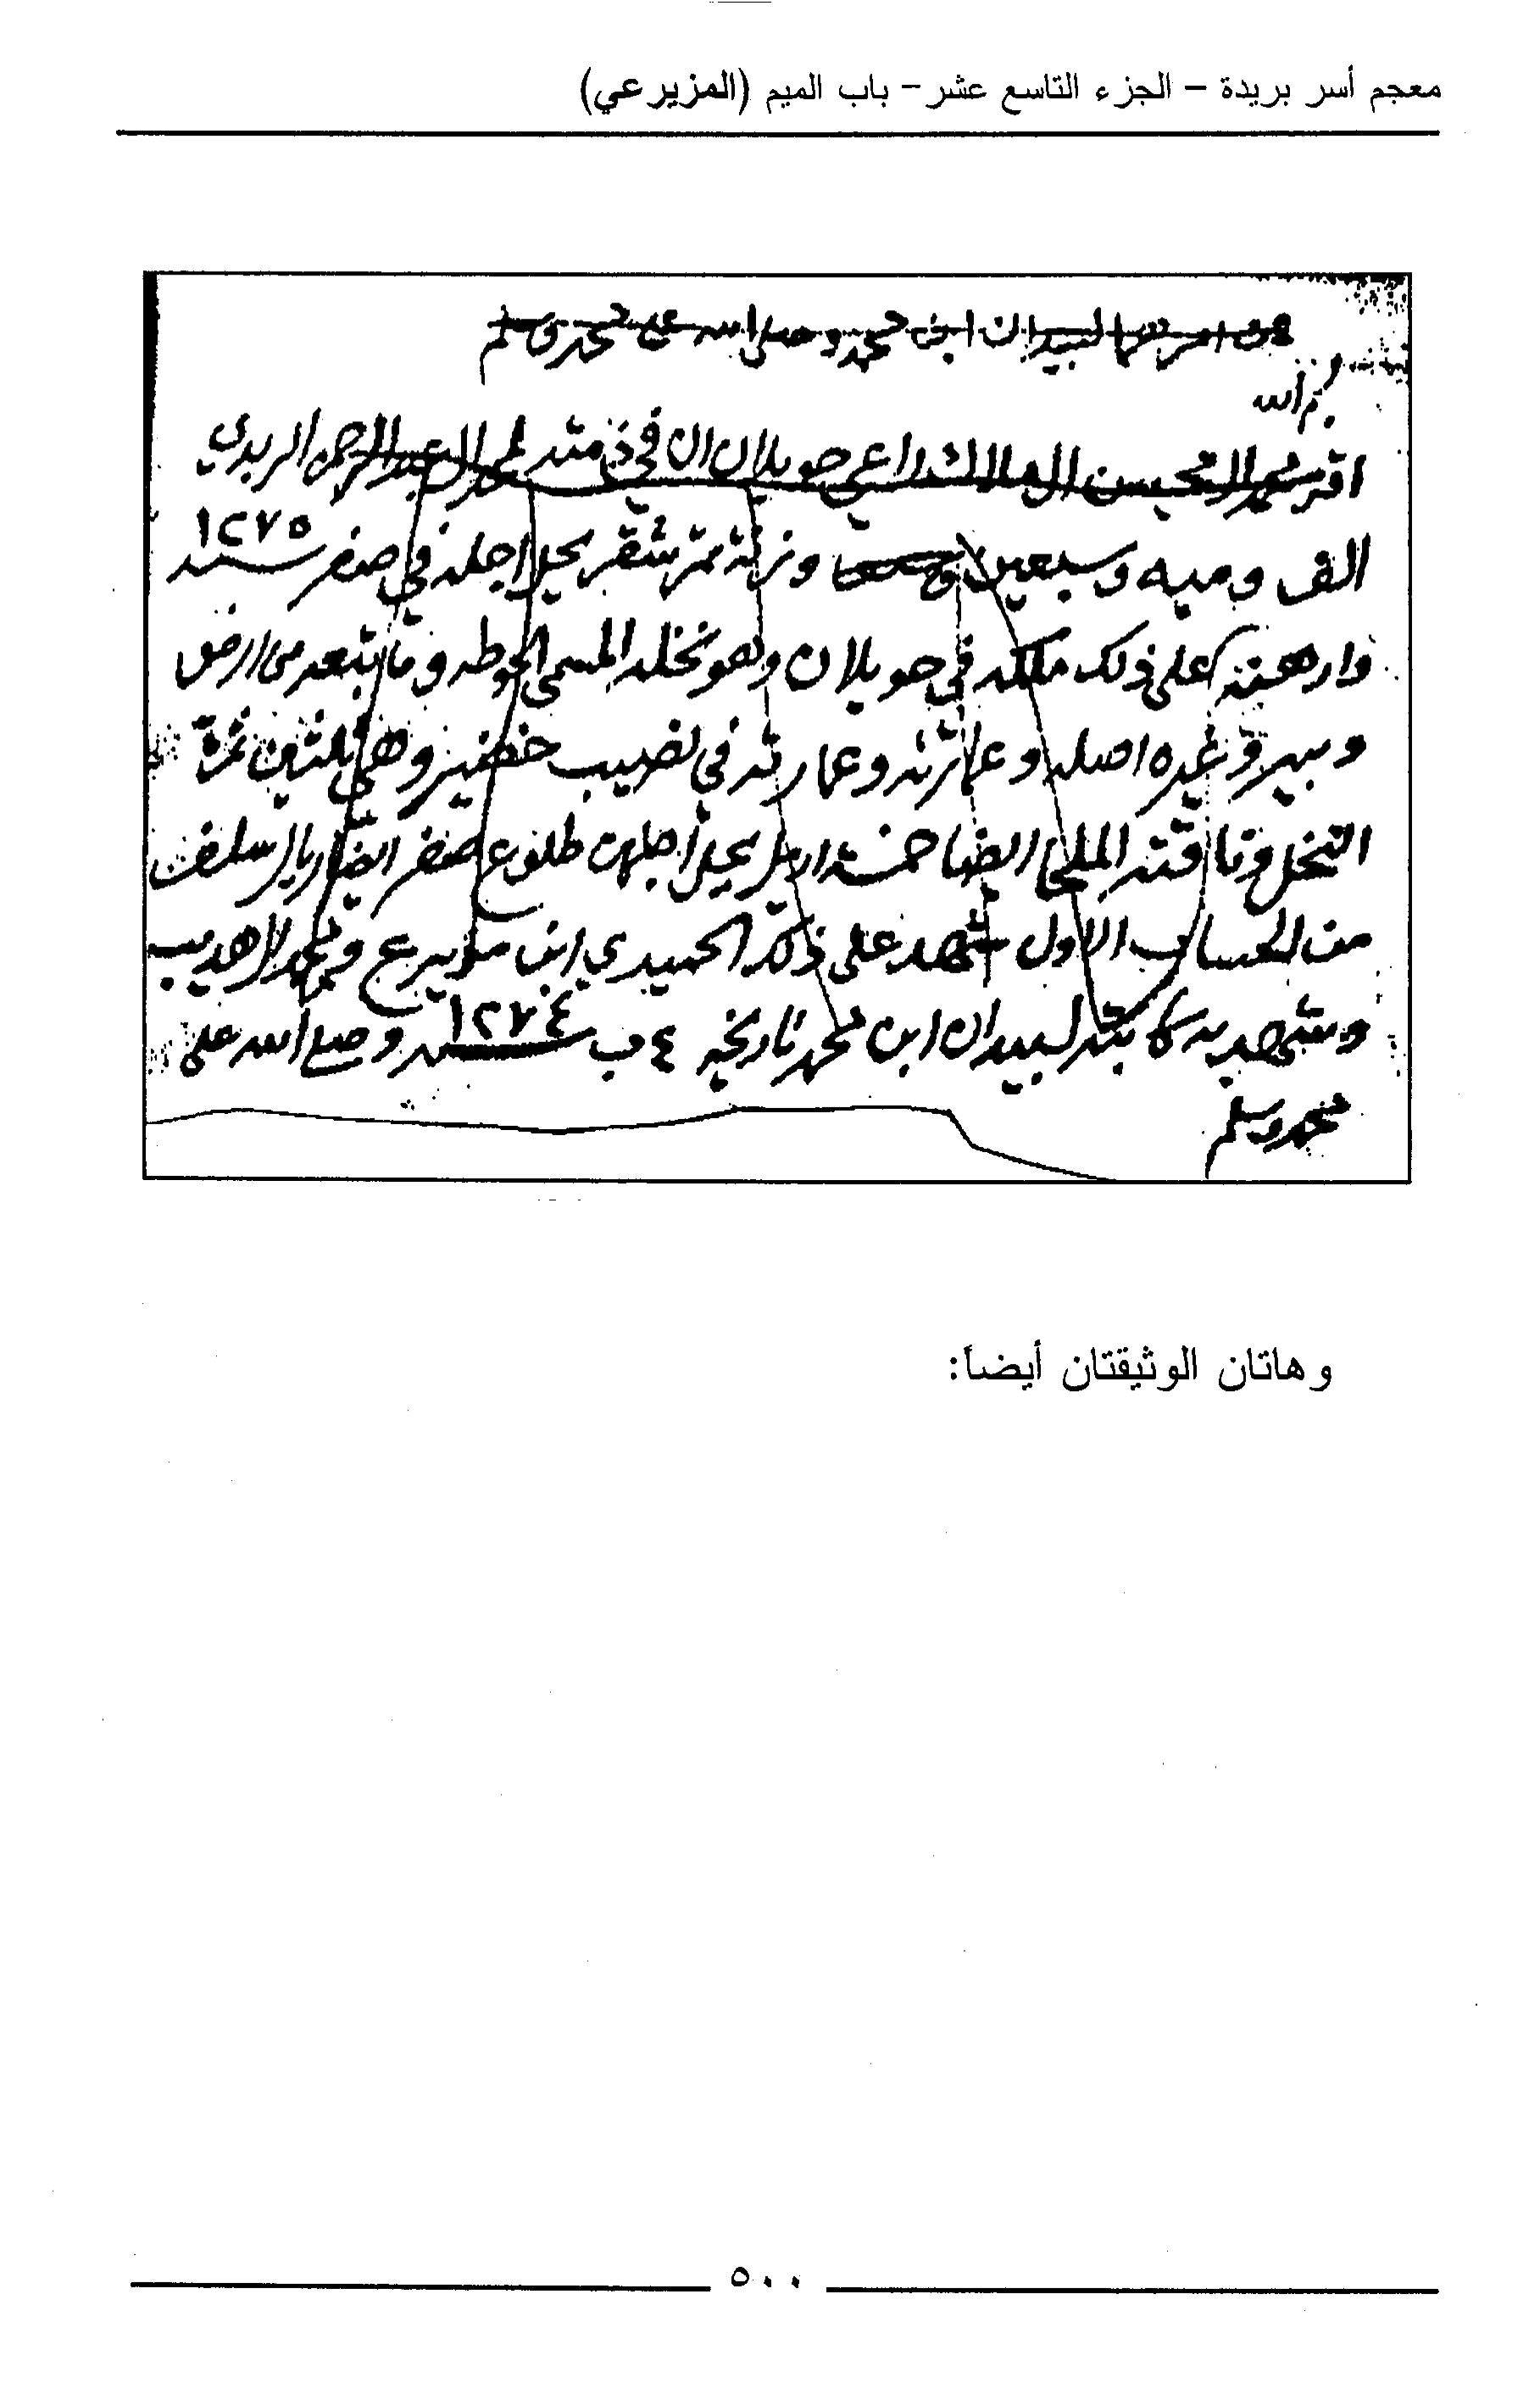 معجم أسر بريدة – الجزء التاسع عشر – باب الميم (المزيرعي)
لبيدان ابن محمد وصلى الله على محمد وسلم
بسم الله
اقر محمد المحيسن الملاك راعي حويلان ان في ذمته لمحمد العبد الرحمن الربدي
الف وميه وسبعين وزنة تمر شقر يحل اجله في صفر سنة ١٢٧٥
وارهنه على ذلك ملكه في حويلان وهو نخله المسمى الحوطه وما يتبعه من ارض
وبير وغيره اصله وعمارته وعمارته في نصيب خضير وهي ثلثين ثمرة
النخل وناقته الملحا ايضا خمسة اريل يحل اجلهن طلوع صفر ايضا ريال سلف
من الحساب الاول شهد على ذلك الحميدي ابن مزيرع ومحمد الاهديب
وشهد به كاتبه لبيدان ابن محمد تاريخه ٤ ب سنة ١٢٧٤ وصلى الله على
محمد وسلم
وهاتان الوثيقتان أيضاً:
٥٠٠